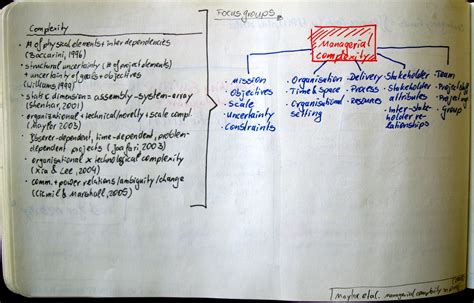 Complexity
• # of physical elements + interdependencies
(Baccarini, 1996)
• structural uncertainty (# of project elements)
+ uncertainty of goals + objectives
(Williams 1999)
• static dimension = assembly - system - array
(Shenhar, 2001)
• organizational + technical/novelty + scale compl.
(Maylor 2003)
• Observer-dependent, time-dependent, problem-
dependent projects (Jaafari 2003)
• organisational x technological complexity
(Xia & Lee, 2004)
• comm. + power relations/ambiguity/change
(Cicmil & Marshall, 2005)
Focus groups
Managerial
complexity
• Mission
• Objectives
• Scale
• Uncertainty
• Constraints
• Organisation
• Time & Space
• Organisational
setting
Delivery
• Process
• resources
Stakeholder
• Stakeholder
attributes
• Inter-stake-
holder re-
lationships
Team
• Project staff
• Project
• group
Maylor et al. managerial complexity